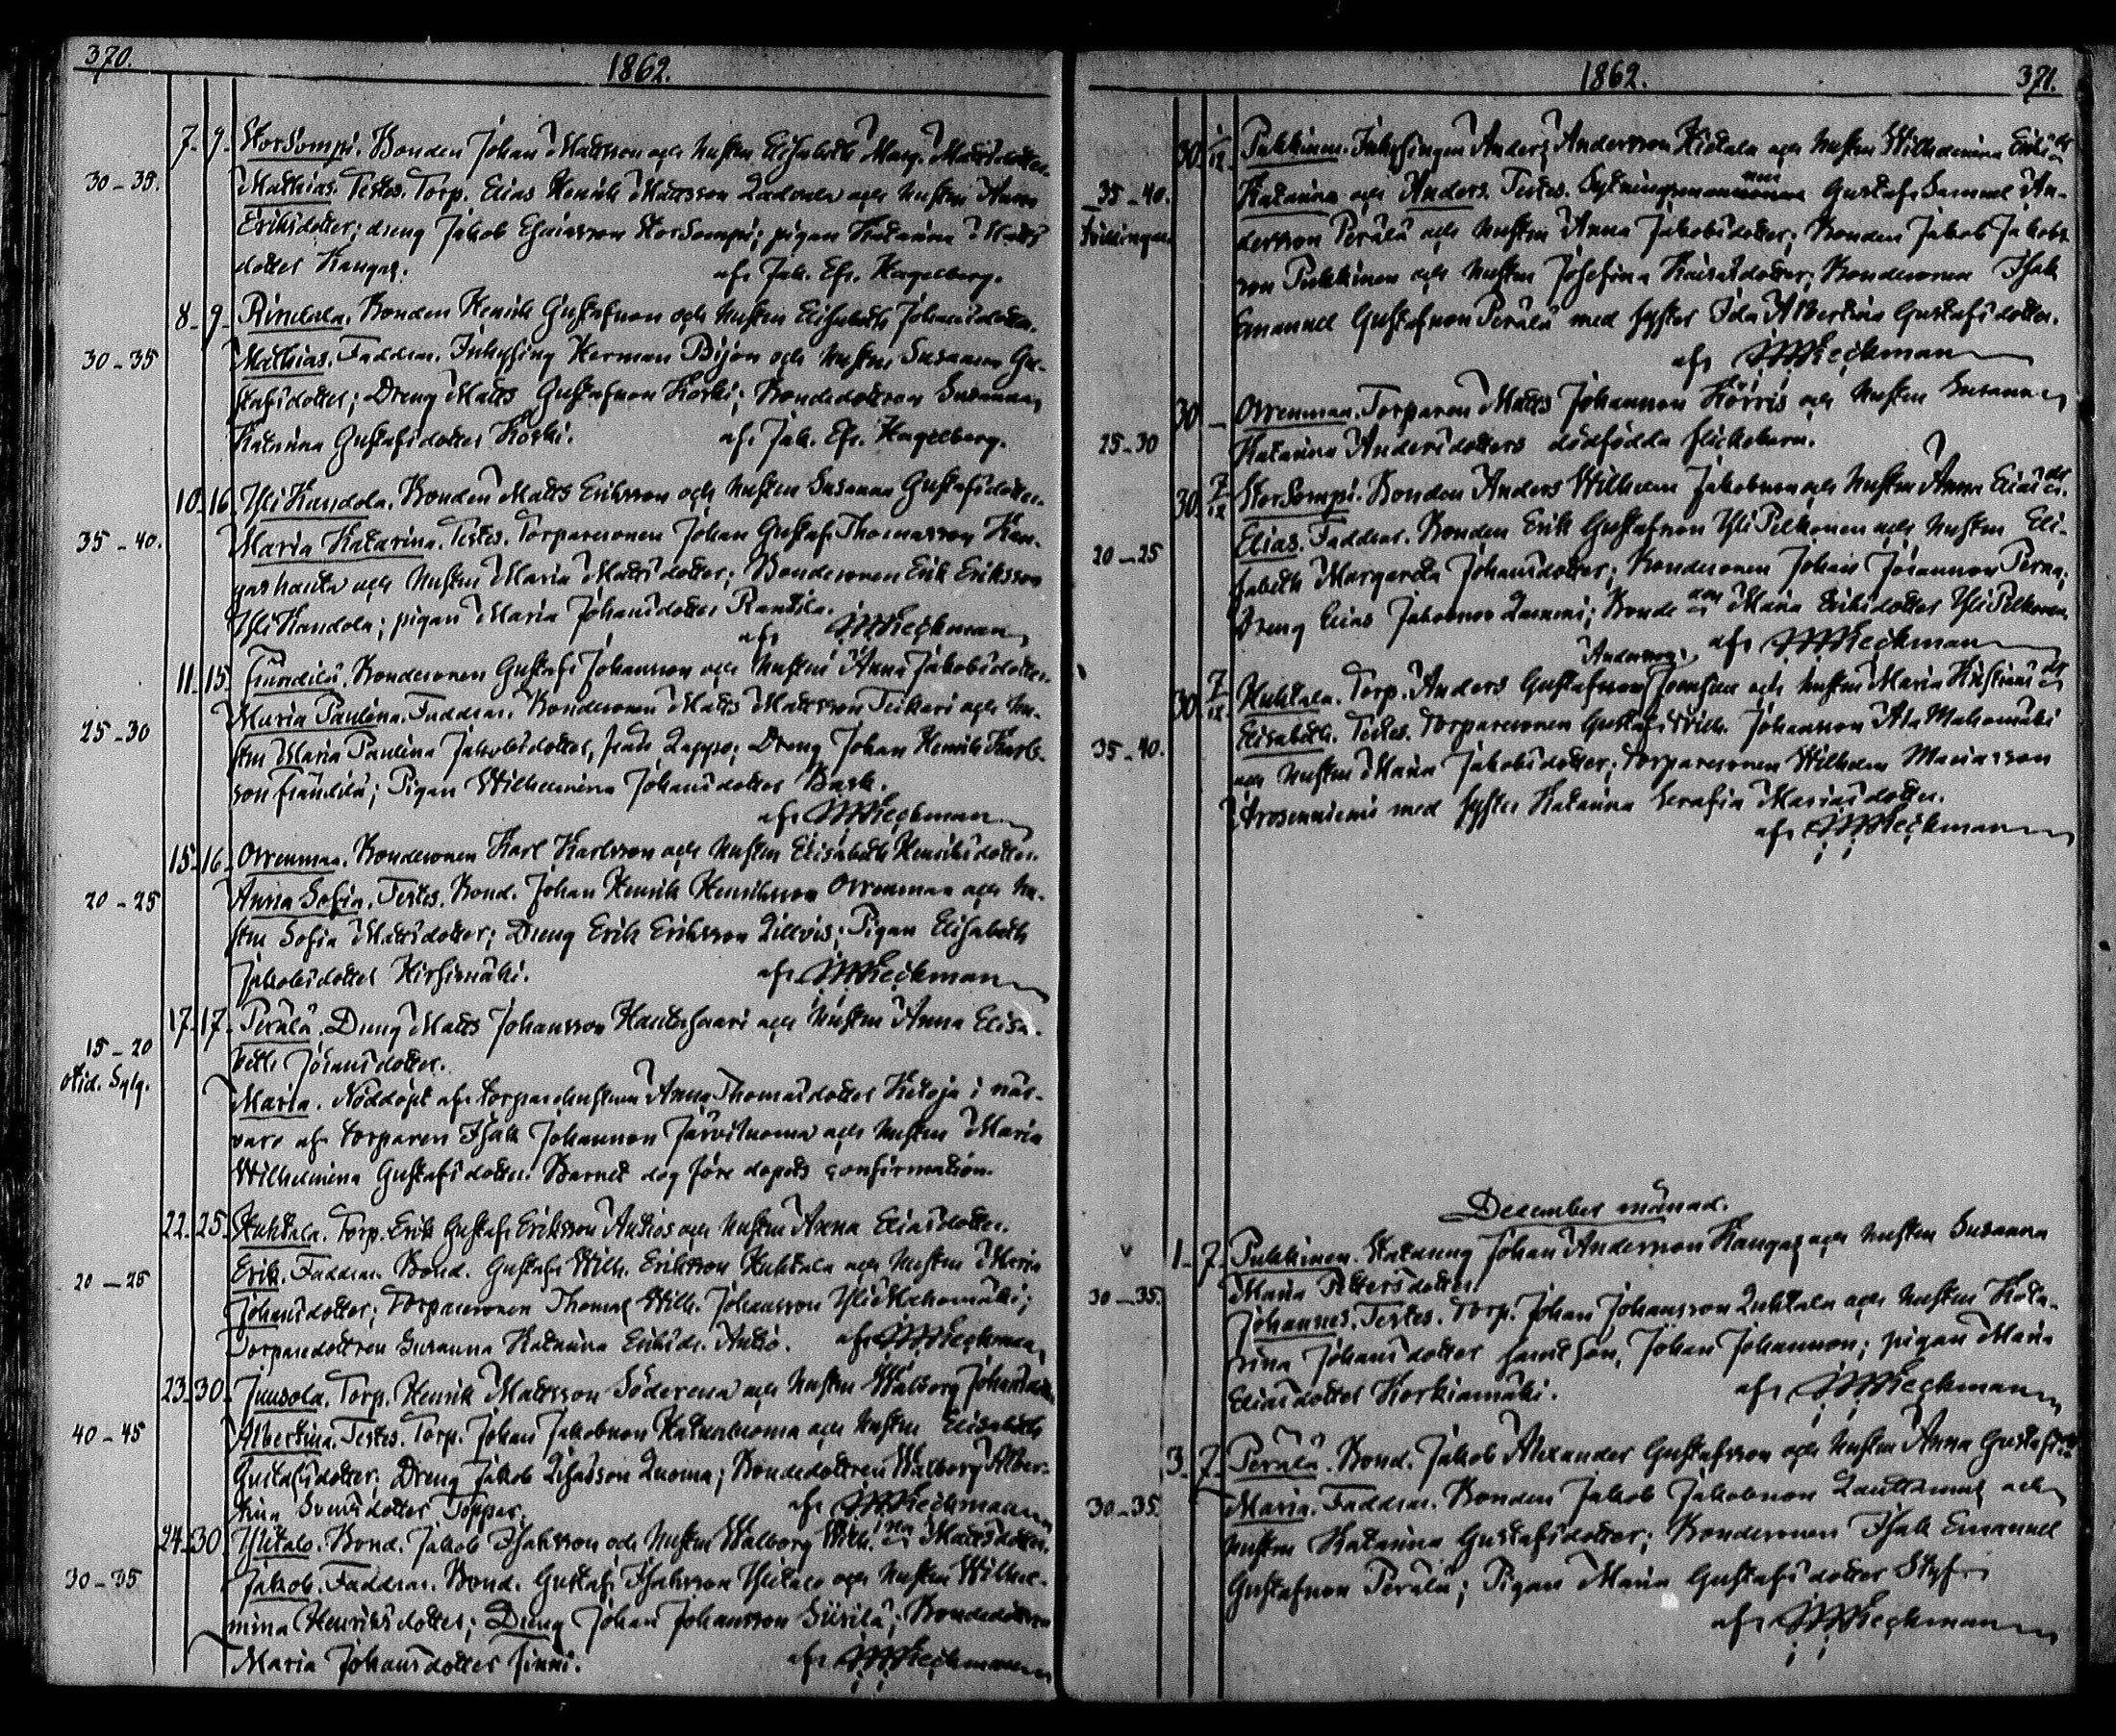 370.
1862.
7. 9. StorSompi. Bonden Johan Mattsson och hustru Elisabeth Marg. Mattsdotter.
30-35. Mathias. Testes. Torp. Elias Henrik Mattsson och hustru Anna
Eriksdotter; dreng Jakob Esaiasson StorSompi; pigan Katarina Matts
dotter Kangas. af Jak. Efr. Hagelberg.
8. 9. Rindala. Bonden Henrik Gustafsson och hustru Elisabeth Johansdotter.
30-35 Mathias. Faddrar. Inhysing Herman Bijon och hustru Susanna Gu-
stafsdotter; Dreng Matts Gustafsson Koski; Bondedottren Susanna
Katarina Gustafsdotter Koski. af Jak. Efr. Hagelberg.
10. 16. YliKandola. Bonden Matts Eriksson och hustru Susanna Gustafsdotter.
35-40. Maria Katarina. Testes. Torparesonen Johan Gustaf Thomasson Kan-
gashauta och hustru Maria Mattsdotter; Bondesonen Erik Eriksson
YliKandola; pigan Maria Johansdotter Rantila.
af Heckman
11. 15. Fränälä. Bondesonen Gustaf Johansson och hustru Anna Jakobsdotter.
25-30 Maria Paulina. Faddrar. Bondesonen Matts Mattsson Teikari och hu-
stru Maria Paulina Jakobsdotter, från Lappo; Dreng Johan Henrik Karls-
son Fräntilä; Pigan Wilhelmina Johansdotter Bask.
af Heckman
15. 16. Orrenmaa. Bondesonen Karl Karlsson och hustru Elisabeth Henriksdotter.
20-25 Anna Sofia. Testes. Bond. Johan Henrik Henriksson Orrenmaa och hu-
stru Sofia Mattsdotter; Dreng Erik Eriksson Lillvis; Pigan Elisabeth
Jakobsdotter Hirsimäki. af Heckman
17. 17. Perälä. Dreng Matts Johansson Hautasaari och hustru Anna Elisa-
15-20 beth Johansdotter.
otid. Sylg.
Maria. Nöddöpt af torparehustrun Anna Thomasdotter Ketoja i när-
varo af torparen Isak Johansson Järviluoma och hustru Maria
Wilhelmina Gustafsdotter. Barnet dog före dopets confirmation.
22. 25. Huhtala. Torp. Erik Gustaf Eriksson Antios och hustru Anna Eliasdotter.
20-25 Erik. Faddrar. Bond. Gustaf Wilh. Eriksson Huhtala och hustru Maria
Johansdotter; Torparesonen Thomas Wilh. Johansson YliMahomäki;
Torparedottren Susanna Katarina Eriksdr. Antio. af Heckman
23. 30. Juusola. Torp. Henrik Mattsson Söderena och hustru Walborg Johansdotter
40-45 Albertina. Testes. Torp. Johan Jakobsson Katuoluoma och hustru Elisabeth
Gustafsdotter; Dreng Jakob Luoma; Bondedottren Walborg Alber-
tina Svensdotter Töppar. af Heckman
24. 30. Ylitalo. Bond. Jakob Isaksson och hustru Walborg Wilh:na Mattsdotter.
30-35 Jakob. Faddrar. Bond. Gustaf Isaksson Ylitalo och hustru Wilhel-
mina Henriksdotter; Dreng Johan Johansson Siirilä; Bondedottren
Maria Johansdotter Jinni. af Heckman
1862.
371.
30. 1/12 Pukkinen. Inhysingen Anders Andersson Hietala och hustru Wilhelmina Eriksdr
35-40. Katarina och Anders. Testes. Sytningsmannen Gustaf Samuel An-
Tvillingar. dersson Perälä och hustru Anna Jakobsdotter; Bonden Jakob Jakobs
son Pukkinen och hustru Josefina Kaisasdotter; Bondesonen Isak
Emanuel Gustafsson Perälä med syster Ida Albertina Gustafsdotter.
af Heckman
30. - Orrenmaa. Torparen Matts Johansson Körris och hustru Susanna
25-30 Katarina Andersdotters dödfödda flickebarn.
30. 7/12 StorSompi. Bonden Anders Wilhelm Jakobsson och hustru Anna Eliasdr.
20-25 Elias. Faddrar. Bonden Erik Gustafsson YliPelkonen och hustru Eli-
sabeth Margareta Johansdotter; Bondesonen Johan Johansson Perna;
Dreng Elias Jakobsson Lammi; Bonde Maria Eriksdotter YliPelkonen
af Heckman
Anderssons
30. 7/12 Huhtala. Torp. Anders Gustafsson Joensuu och hustru Maria Kristinas dr
35-40. Elisabeth. Testes. Torparesonen Gustaf Wilh. Johansson AlaMahomäki
och hustru Maria Jakobsdotter; Torparesonen Wilhelm Mariasson
Arosenniemi med syster Katarina Serafia Mariasdotter.
af Heckman
December månad.
1. 7. Pukkinen. Statdreng Johan Andersson Kangas och hustru Susanna
Maria Pettersdotter.
30-35. Johannes. Testes. Torp. Johan Johansson Luhtala och hustru Kata-
rina Johansdotter samt son, Johan Johansson; pigan Maria
Eliasdotter Korkiamäki. af Heckman
3. 7. Perälä. Bond. Jakob Alexander Gustafsson och hustru Anna Gustafsdr.
30-35. Maria. Faddrar. Bonden Jakob Jakobsson Lauttamus och
hustru Katarina Gustafsdotter; Bondesonen Isak Emanuel
Gustafsson Perälä; Pigan Maria Gustafsdotter Styf
af Heckman